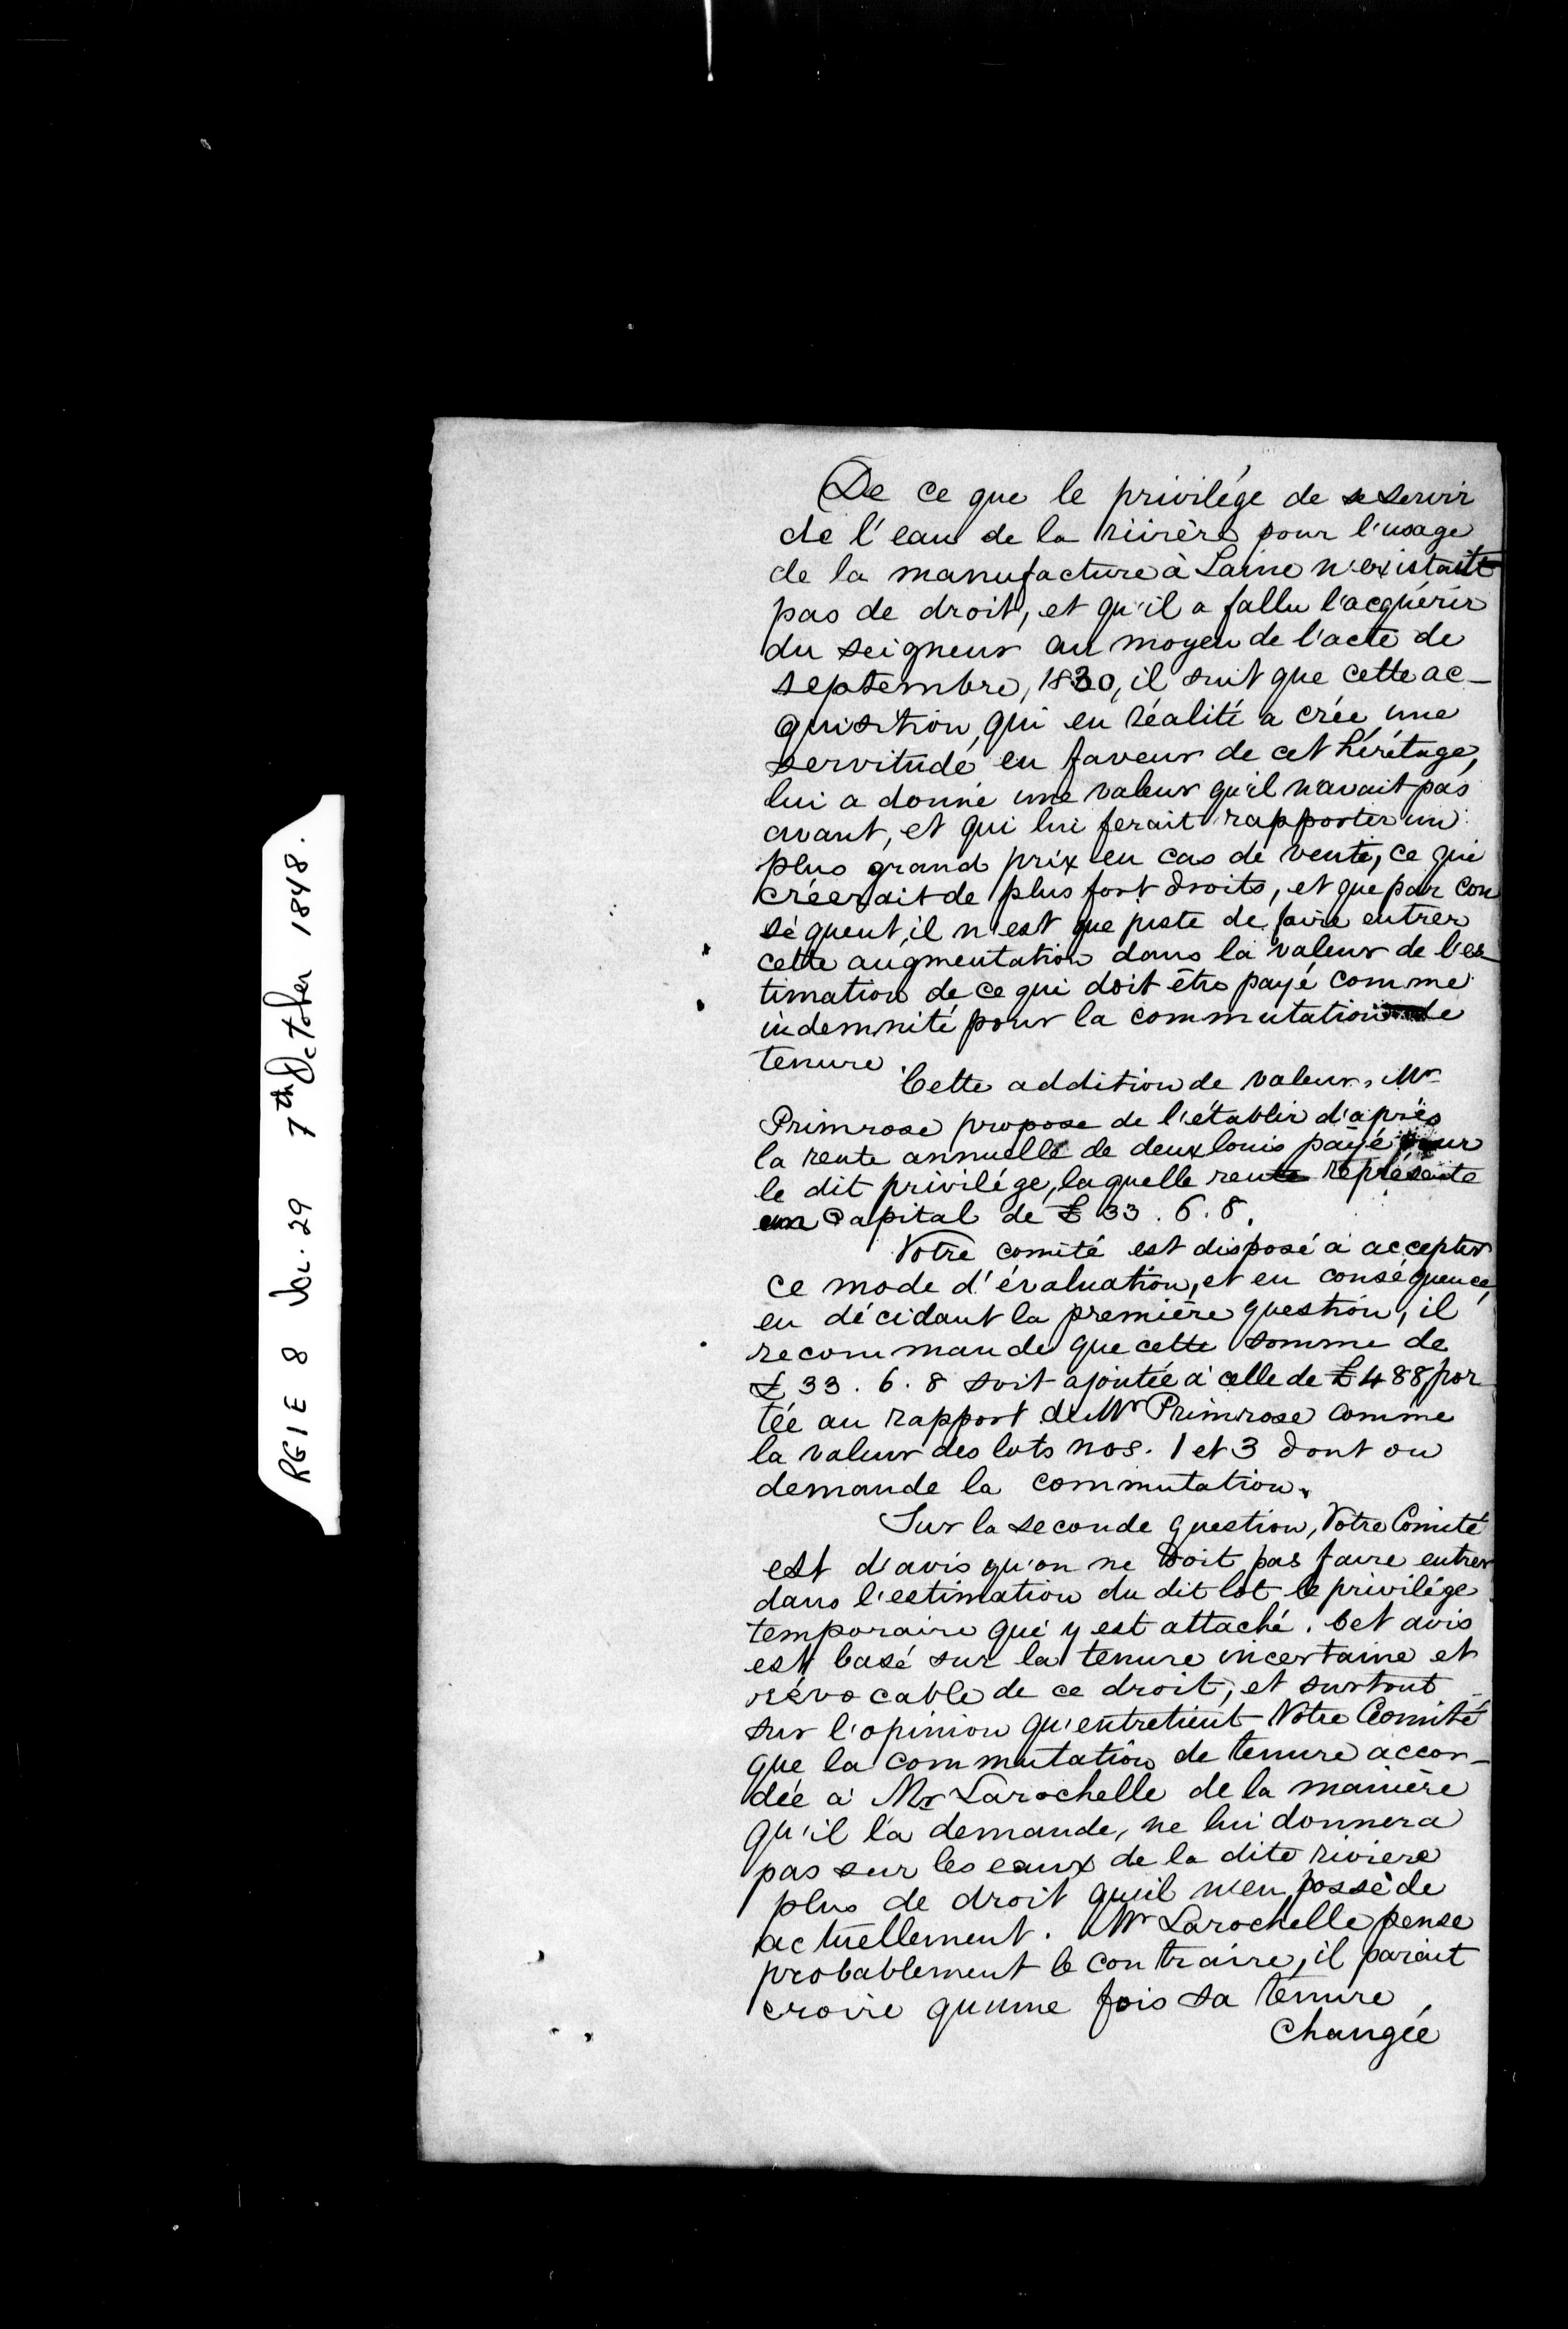 RG1 E 8 Vol. 29 7th October 1848.
De ce que le privilége de se servir
de l'eau de la rivière pour l'usage
de la manufacture à Laine n'existait
pas de droit, et qu'il a fallu l'acquérir
du seigneur au moyen de l'acte de
septembre, 1830, il suit que cette ac-
quisition, qui en réalité a crée une
servitude en faveur de cet héritage,
lui a donné une valeur qu'il n'avait pas
avant, et qui lui ferait rapporter un
plus grand prix en cas de vente, ce qui
créerait de plus fort droits, et que par con
séquent, il n'est que juste de faire entrer
cette augmentation dans la valeur de l'es-
timation de ce qui doit être payé comme
indemnité pour la commutation de
tenure.
Cette addition de valeur, Mr
Primrose propose de l'établir d'après
la rente annuelle de deux louis payé pour
le dit privilége, laquelle rente représente
un Capital de £ 33. 6. 8.
Votre comité est disposé à accepter
ce mode d'évaluation, et en conséquence,
en décidant la première question, il
recommande que cette somme de
£ 33. 6. 8 soit ajoutée à celle de £ 488 por
tée au rapport de Mr Primrose comme
la valeur des lots nos. 1 et 3 dont on
demande la commutation.
Sur la seconde question, Votre Comité
est d'avis qu'on ne doit pas faire entrer
dans l'estimation du dit lot le privilége
temporaire qui y est attaché. Cet avis
est basé sur la tenure incertaine et
révocable de ce droit, et surtout
sur l'opinion qu'entretient Votre Comité
que la commutation de tenure accor-
dée à Mr Larochelle de la manière
qu'il l'a demande, ne lui donnera
pas sur les eaux de la dite riviere
plus de droit qu'il n'en possède
actuellement. Mr Larochelle pense
probablement le contraire, il parait
croire qu'une fois sa tenure
Changée